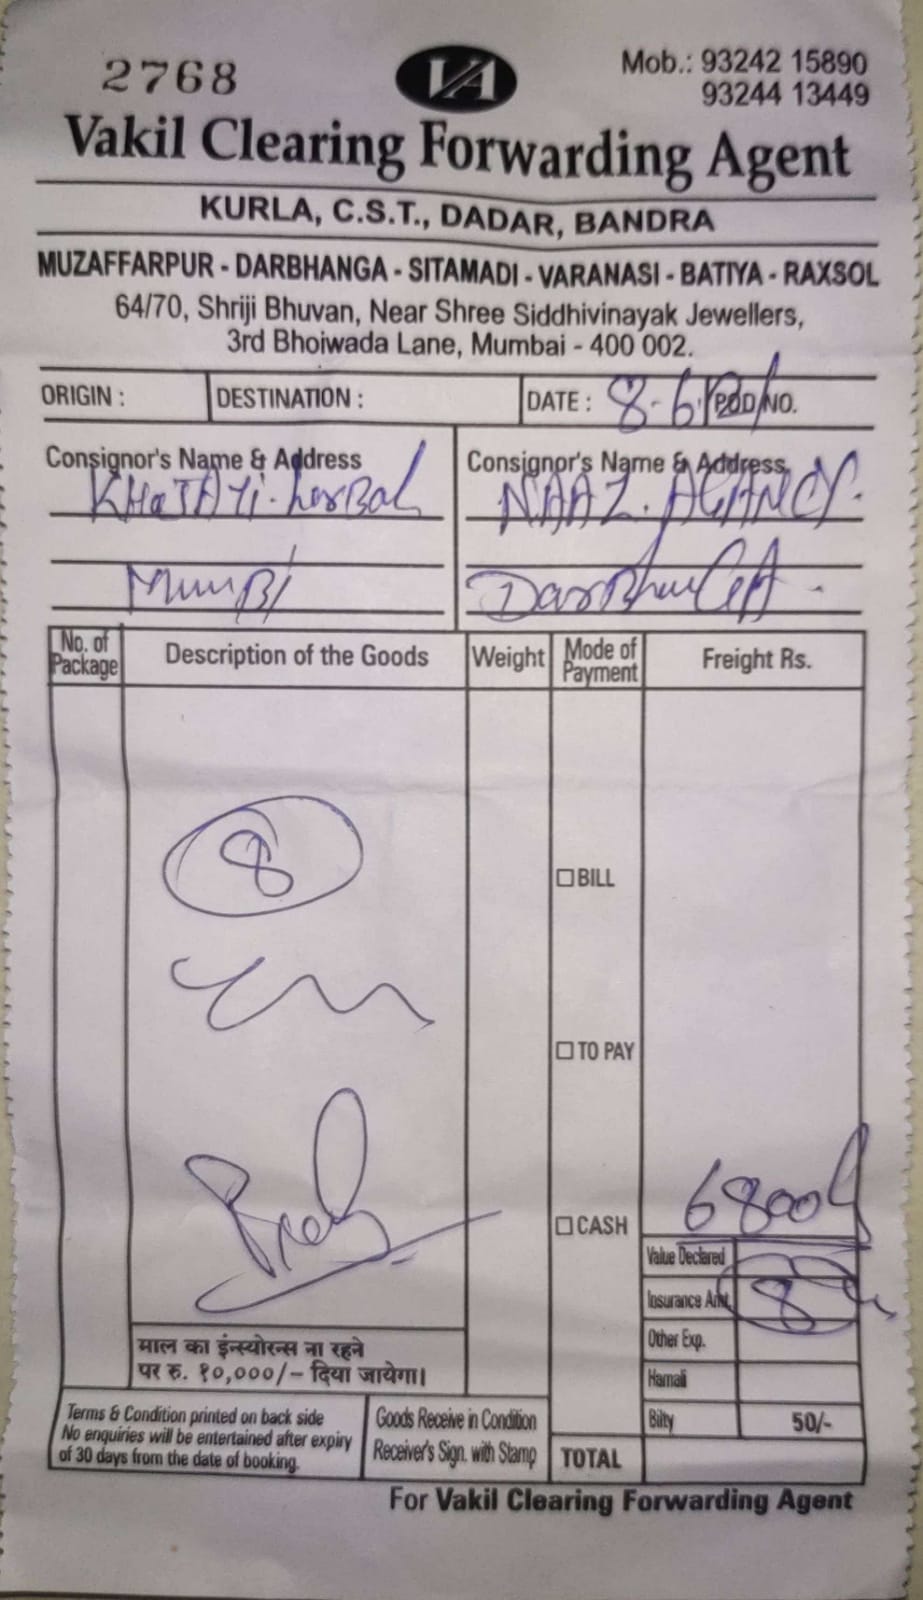 2768
VA
Mob.: 93242 15890
93244 13449
Vakil Clearing Forwarding Agent
KURLA, C.S.T., DADAR, BANDRA
MUZAFFARPUR - DARBHANGA - SITAMADI - VARANASI - BATIYA - RAXSOL
64/70, Shriji Bhuvan, Near Shree Siddhivinayak Jewellers,
3rd Bhoiwada Lane, Mumbai - 400 002.
ORIGIN : DESTINATION : DATE : 8-6 POD NO.
Consignor's Name & Address Consignor's Name & Address
NAAZ. AGANCY.
No. of Package Description of the Goods Weight Mode of Payment Freight Rs.
8
BILL
TO PAY
6800
CASH
Value Declared
Insurance Amt. 8
Other Exp.
माल का इंन्स्योरन्स ना रहने
पर रु. १०,०००/– दिया जायेगा।
Hamali
Bilty 50/-
Terms & Condition printed on back side
No enquiries will be entertained after expiry
of 30 days from the date of booking.
Goods Receive in Condition
Receiver's Sign. with Stamp
TOTAL
For Vakil Clearing Forwarding Agent